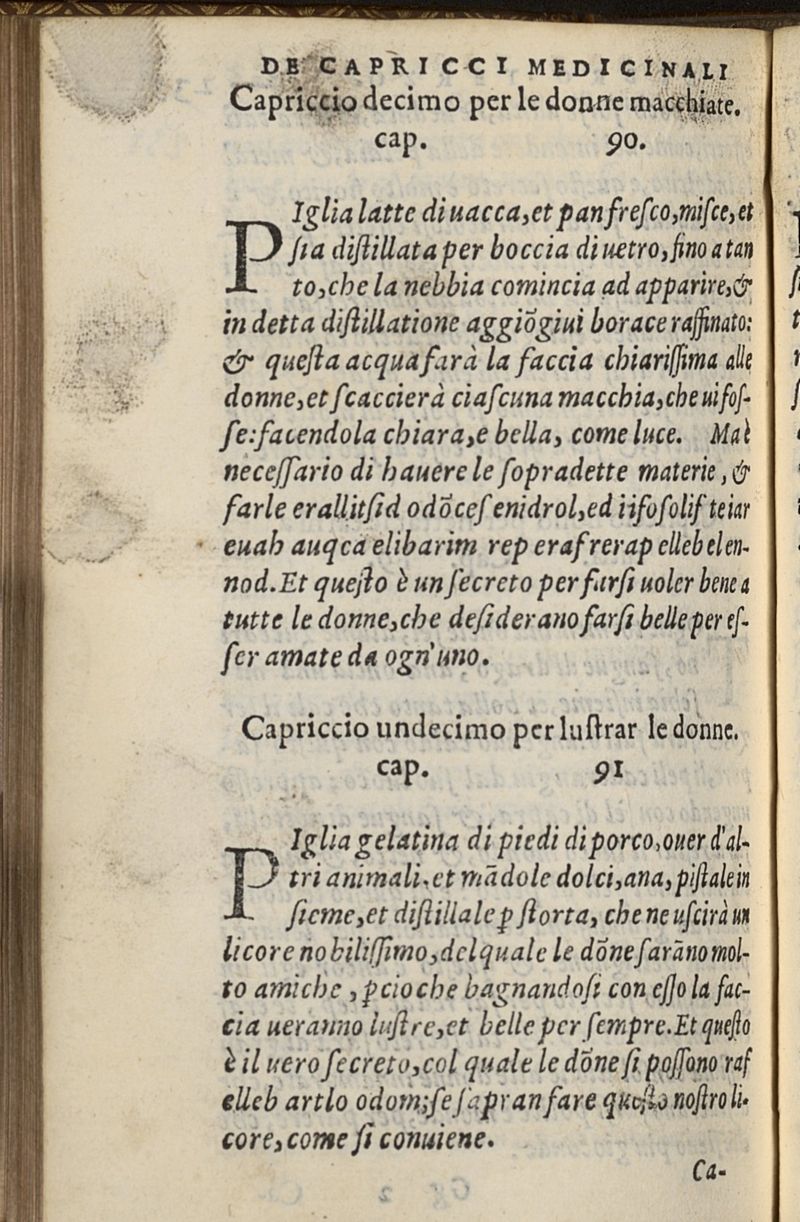 DE CAPRICCI MEDICINALI
Capriccio decimo per le donne macchiate.
cap. 90.
PIglia latte di uacca, et pan freſco, miſce, et
ſia diſtillata per boccia di uetro, fino a tan
to, che la nebbia comincia ad apparire, &
in detta diſtillatione aggiõgiui borace raffinato:
& queſta acqua farà la faccia chiariſſima alle
donne, et ſcaccierà ciaſcuna macchia, che ui foſ-
ſe: facendola chiara, e bella, come luce. Ma è
neceſſario di hauere le ſopradette materie, &
farle erallitſid odõceſ enidrol, ed iifoſolif teiar
euah auqca elibarim rep erafrerap elleb el en-
nod. Et queſto è un ſecreto per farſi uoler bene a
tutte le donne, che deſiderano farſi belle per eſ-
ſer amate da ogn'uno.
Capriccio undecimo per luſtrar le donne.
cap. 91
PIglia gelatina di piedi di porco, ouer d'al-
tri animali, et mãdole dolci, ana, piſtale in
ſieme, et diſtillale ꝑ ſtorta, che ne uſcirà un
licore nobiliſſimo, del quale le dõne ſarãno mol-
to amiche, ꝑcioche bagnandoſi con eſſo la fac-
cia ueranno luſtre, et belle per ſempre. Et queſto
è il uero ſecreto, col quale le dõne ſi poſſono raf
elleb artlo odom; ſe ſapran fare queſto noſtro li-
core, come ſi conuiene.
Ca-